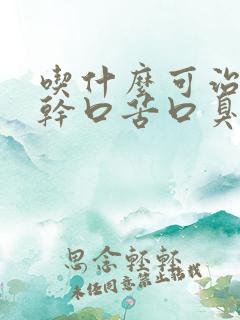 喫什麼可治
幹口苦口臭
思念輕輕
未經同意禁止搭載